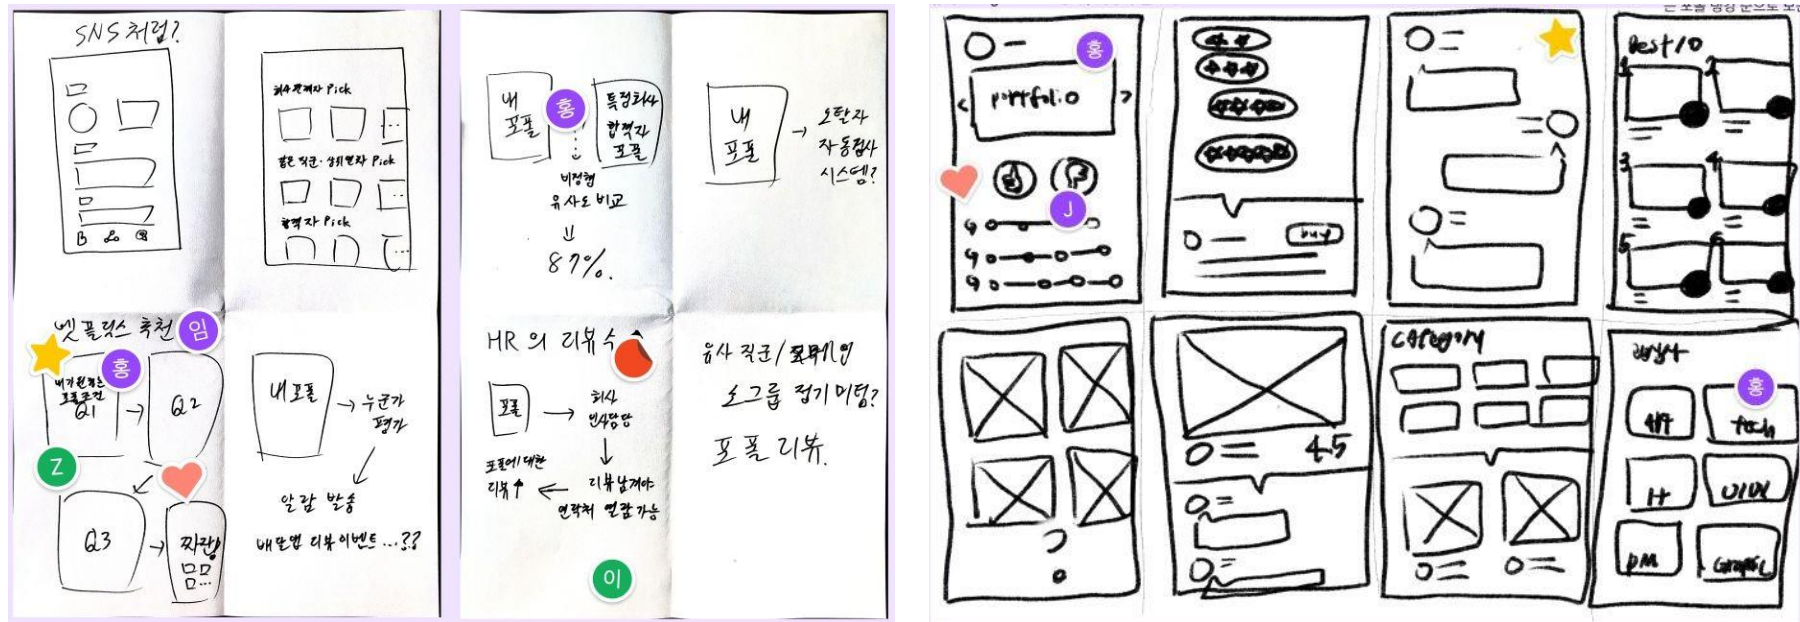 SNS처럼?
Pick
같은 직군·상위연차 Pick
합격자 Pick
넷플릭스 추천
임
홍
내가 원하는
포폴조건
Q1
Q2
Z
Q3
짜란!
내 포폴
누군가
평가
알람 발송
배달앱 리뷰이벤트...??
내
포폴
홍
특정회사
합격자
포폴
비정형
유사도 비교
87%.
내
포폴
오탈자
자동검사
시스템?
HR의 리뷰수
포폴
회사
인사담당
리뷰남겨야
연락처 열람가능
포폴에 대한
리뷰↑
이
유사 직군/
소그룹 정기미팅?
포폴리뷰.
홍
portfolio
J
buy
Best 10
1
2
3
4
5
6
4.5
CATEGORY
홍
Tech
UI/UX
PM
Graphic